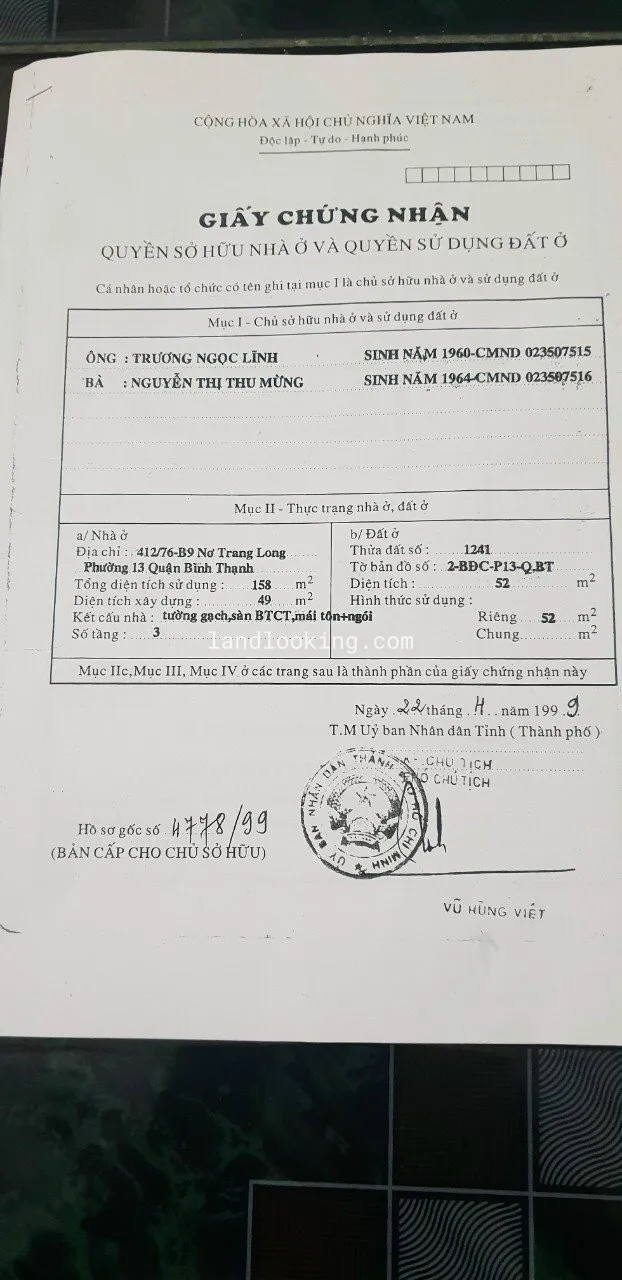 CỘNG HÒA XÃ HỘI CHỦ NGHĨA VIỆT NAM
Độc lập - Tự do - Hạnh phúc
GIẤY CHỨNG NHẬN
QUYỀN SỞ HỮU NHÀ Ở VÀ QUYỀN SỬ DỤNG ĐẤT Ở
Cá nhân hoặc tổ chức có tên ghi tại mục I là chủ sở hữu nhà ở và sử dụng đất ở
Mục I - Chủ sở hữu nhà ở và sử dụng đất ở
ÔNG : TRƯƠNG NGỌC LĨNH SINH NĂM 1960-CMND 023507515
BÀ : NGUYỄN THỊ THU MỪNG SINH NĂM 1964-CMND 023507516
Mục II - Thực trạng nhà ở, đất ở
a/ Nhà ở
Địa chỉ : 412/76-B9 Nơ Trang Long
Phường 13 Quận Bình Thạnh
Tổng diện tích sử dụng : 158 m2
Diện tích xây dựng : 49 m2
Kết cấu nhà : tường gạch,sàn BTCT,mái tôn+ngói
Số tầng : 3
b/ Đất ở
Thửa đất số : 1241
Tờ bản đồ số : 2-BĐC-P13-Q.BT
Diện tích : 52 m2
Hình thức sử dụng :
Riêng 52 m2
Chung m2
landlooking.com
Mục IIc,Mục III, Mục IV ở các trang sau là thành phần của giấy chứng nhận này
Ngày 22 tháng 4 năm 1999
T.M Uỷ ban Nhân dân Tỉnh ( Thành phố )
CHỦ TỊCH
PHÓ CHỦ TỊCH
ỦY BAN NHÂN DÂN THÀNH PHỐ HỒ CHÍ MINH
Hồ sơ gốc số 4778/99
(BẢN CẤP CHO CHỦ SỞ HỮU)
VŨ HÙNG VIỆT